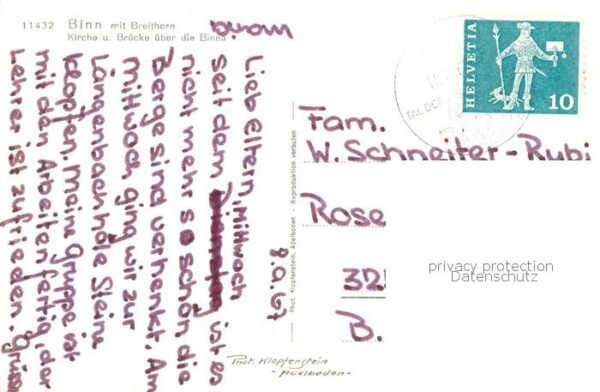 11432 Binn mit Breithorn
Kirche u. Brücke über die Binna
9.9.67
Lieb Eltern, Mittwoch
seit dem ist es
nicht mehr so schön die
Berge sind verhenkt. Am
Mittwoch ging wir zur
Langenbach hole Steine
klopfen. Meine Gruppe ist
mit den Arbeiten fertig, der
Lehrer ist zufrieden. Grüss
HELVETIA
10
TAL DER
Fam.
W. Schneiter-Rubi
Rose
B.
Phot. Klopfenstein, Adelboden - Reproduktion verboten
Phot. Klopfenstein
- Adelboden -
privacy protection
Datenschutz